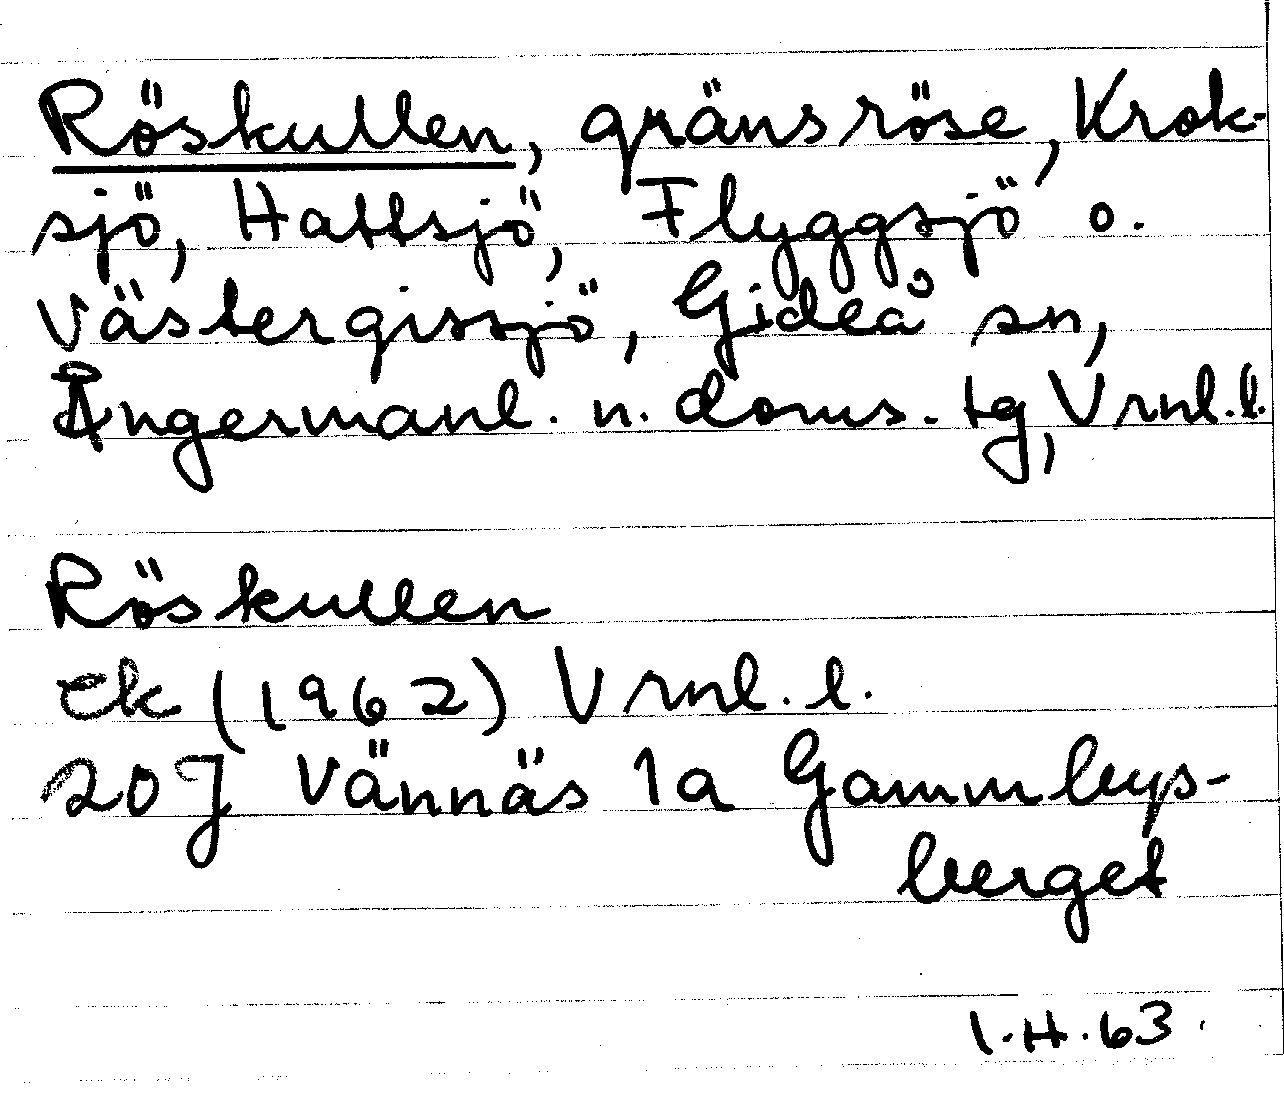 Röskullen, gränsröse, Krok-
sjö, Hattsjö, Flyggsjö o.
Västergissjö, Gideå sn,
Ångermanl. n. doms. tg, Vrnl.l.
Röskullen
Ek (1962) Vrnl. l.
20 J Vännäs 1a Gammbys-
berget
I.H.63.